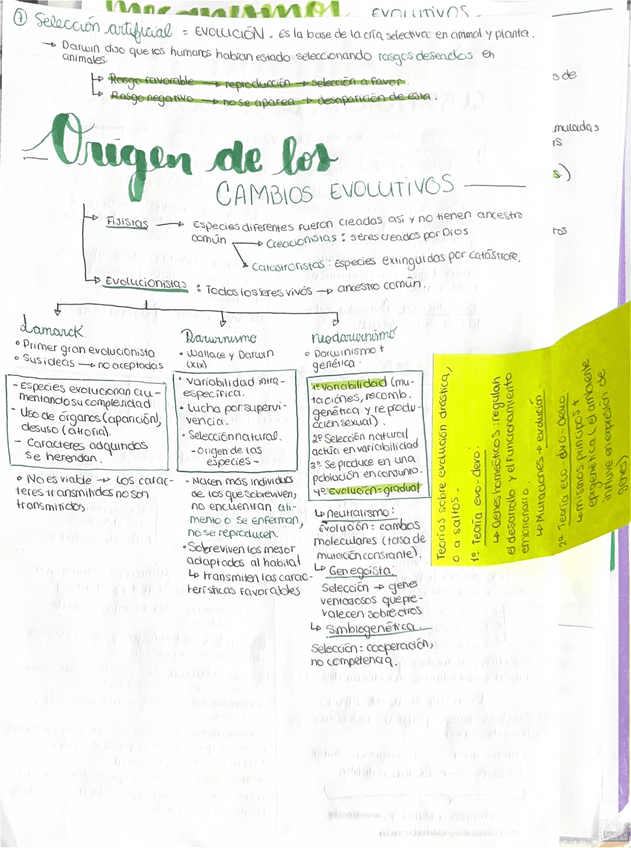 EVOLUTIVOS
⑦ Selección artificial = EVOLUCIÓN - Es la base de la cría selectiva en animal y planta.
→ Darwin dijo que los humanos habían estado seleccionando rasgos deseados en
animales.
↳ Rasgo favorable → reproducción → selección a favor.
↳ Rasgo negativo → no se aparea → desaparición de este.
Origen de los
CAMBIOS EVOLUTIVOS
↳ Fijistas → Especies diferentes fueron creadas así y no tienen ancestro
común
Creacionistas : seres creados por Dios
Catastrofistas : Especies extinguidas por catástrofe.
↳ Evolucionistas : Todos los seres vivos → ancestro común.
Lamarck.
• Primer gran evolucionista
• Sus ideas → no aceptadas
- Especies evolucionan au-
mentando su complejidad
- Uso de órganos (aparición),
desuso (atrofia).
- Caracteres adquiridos
se heredan.
• No es viable → los carac-
teres transmitidos no son
transmitidos
Darwinismo
• Wallace y Darwin
(XIX)
• Variabilidad intra-
específica.
• Lucha por supervi-
vencia.
• Selección natural.
- Origen de las
especies -
• Nacen más individuos
de los que sobreviven,
no encuentran ali-
mento o se enferman,
no se reproducen.
• Sobreviven los mejor
adaptados al hábitat
↳ transmiten las carac-
terísticas favorables
neodarwinismo
• Darwinismo +
genética.
1º Variabilidad (mu-
taciones, recomb.
genética y reprodu-
cción sexual).
2º Selección natural
actúa en variabilidad
3º Se produce en una
población en conjunto.
4º Evolución = gradual
↳ Neutralismo:
Evolución: cambios
moleculares (tasa de
mutación constante).
↳ Genegoísta:
Selección → genes
ventajosos que pre-
valecen sobre otros.
↳ Simbiogenética
Selección: cooperación,
no competencia.
Teorías sobre evolución drástica,
o a saltos.
1º Teoría evo-devo:
↳ Genes homeóticos: regulan
el desarrollo y el funcionamiento
embrionario.
↳ Mutaciones → evolución.
2º Teoría eco-evo-devo.
↳ mismos principios +
epigenética (el ambiente
influye en expresión de
genes)
s de
muladas
rs
s)
ros